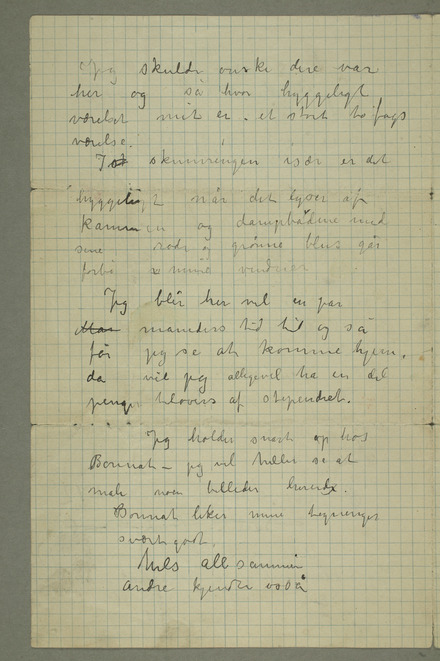 Jeg skulde ønske dere var
her og så hvor hyggeligt
værelset mitt er. et stort to fags
værelse.
I skumringen især er det
hyggeligt når det lyser af
kaminen og dampbådene med
sine røde og grønne blus går
forbi mine vinduer
Jeg blir her vel en par
maaneders tid til og så
får jeg se at komme hjem.
da vil jeg alligevel ha en del
penger tilovers af stipendiet.
Jeg holder snart op hos
Bonnat – jeg vil heller se at
male noen billeder
Bonnat liker mine tegninger
svært godt.
Hils allesammen
andre kjendte også